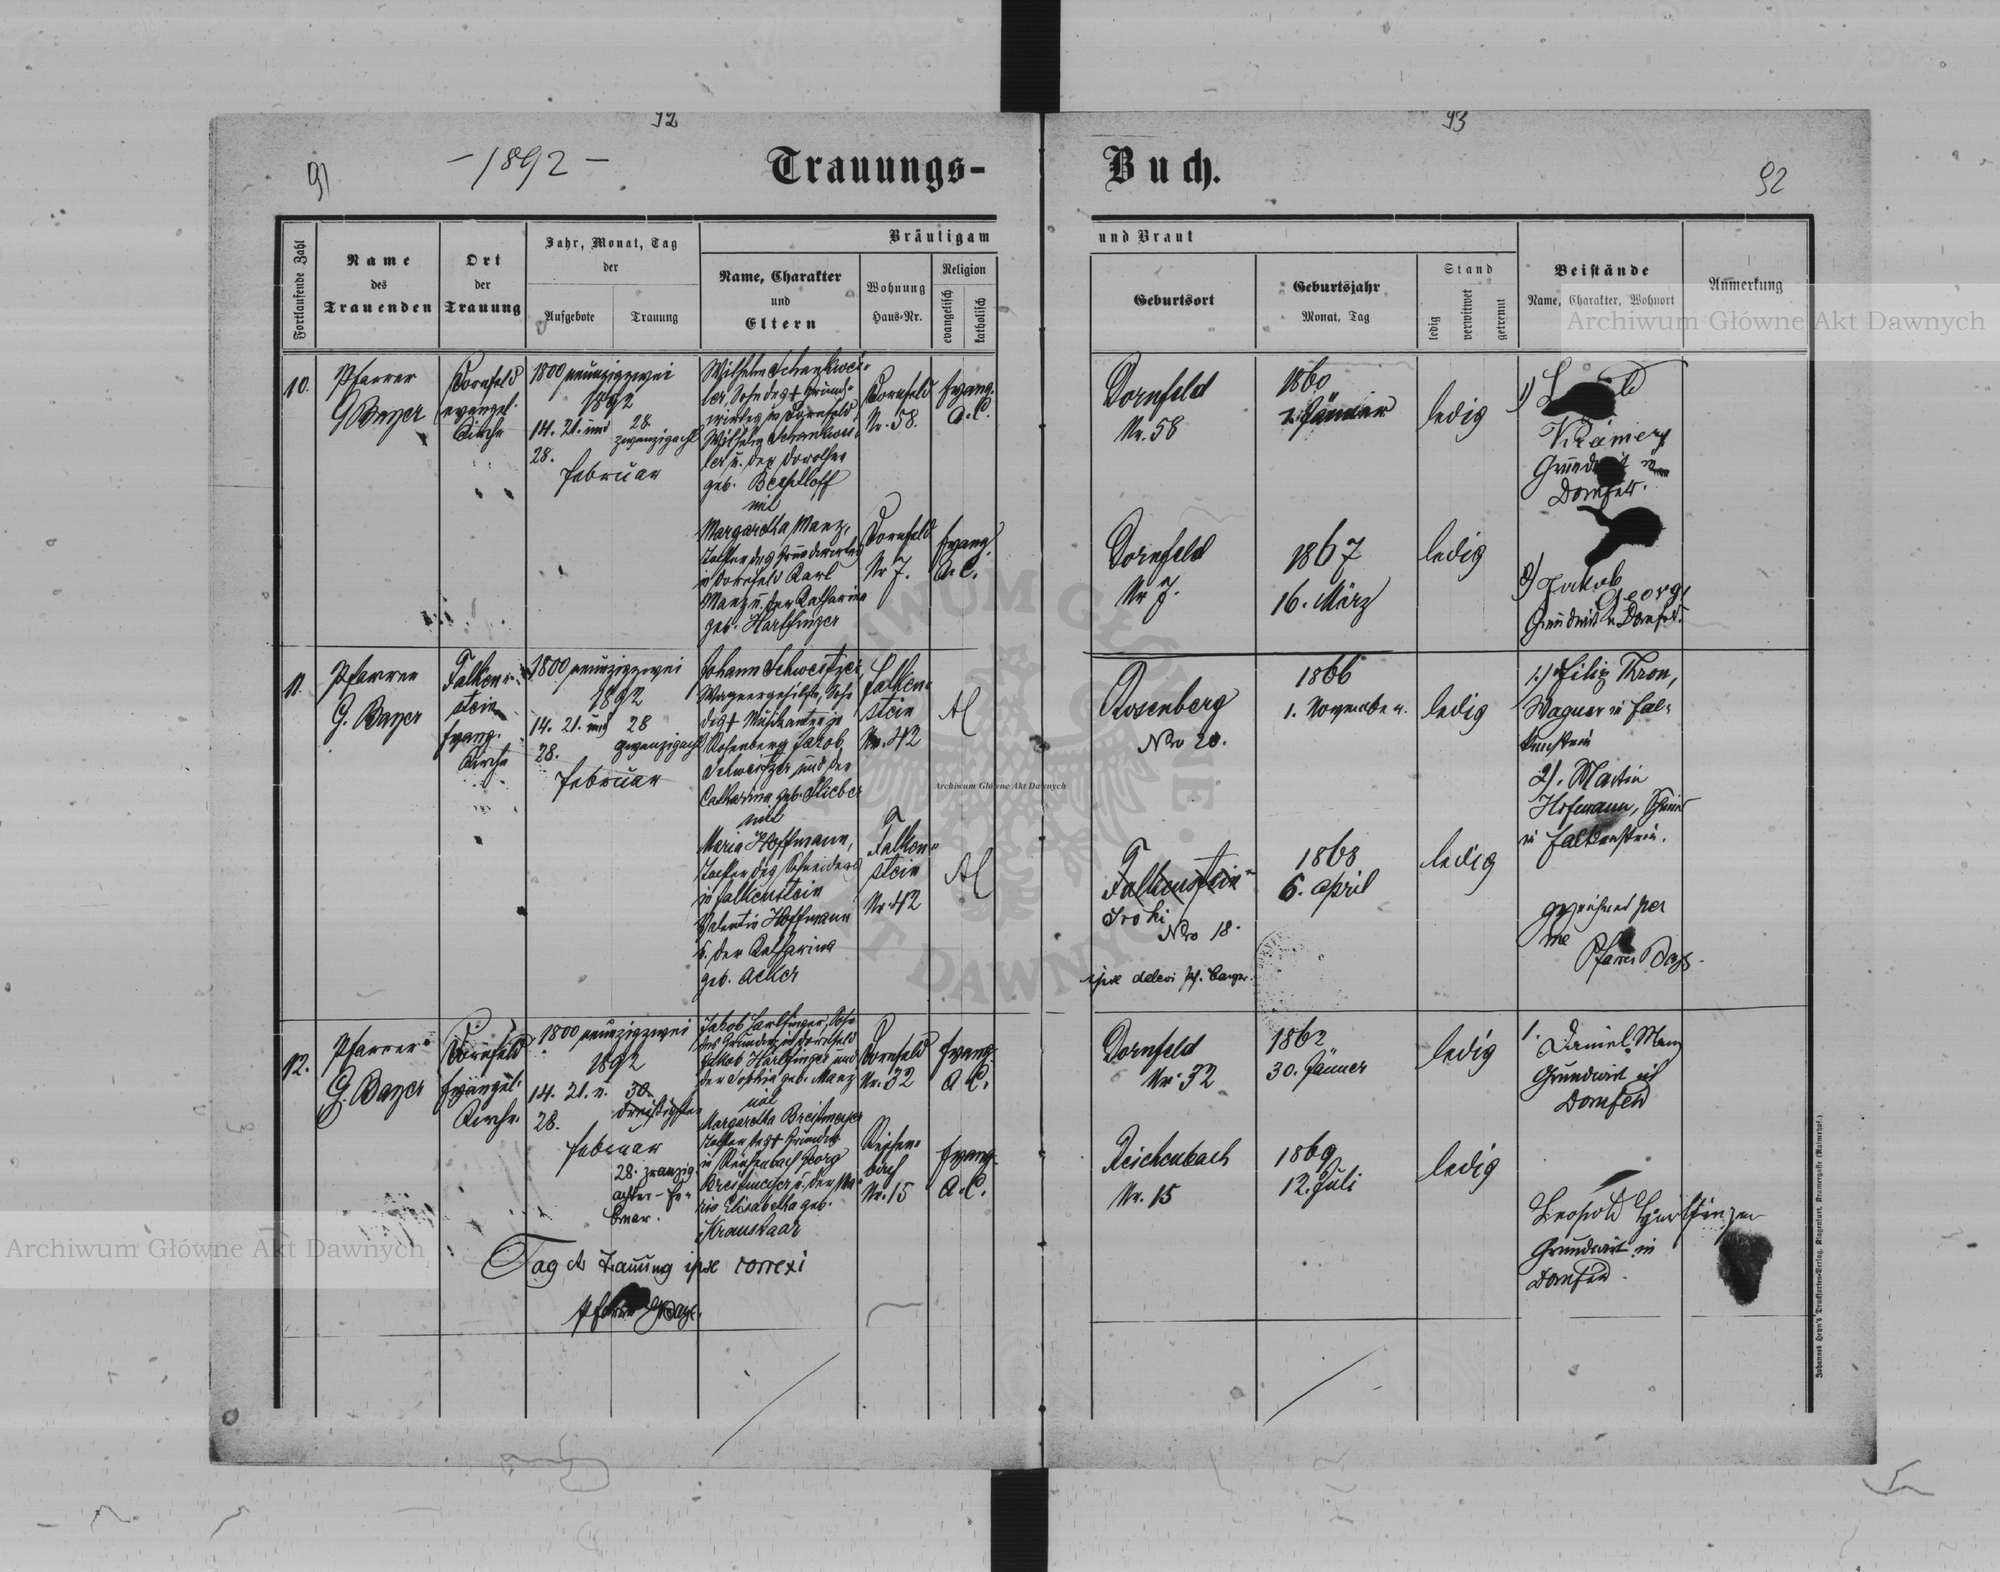 92
93
91
- 1892 -
Trauungs-
Buch.
92
Fortlaufende Zahl
Name
des
Trauenden
Ort
der
Trauung
Jahr, Monat, Tag
der
Aufgebote
Trauung
Bräutigam
Name, Charakter
und
Eltern
Wohnung
Haus-Nr.
Religion
evangelisch
katholisch
und Braut
Geburtsort
Geburtsjahr
Monat, Tag
Stand
ledig
verwitwet
getrennt
Beistände
Name, Charakter, Wohnort
Anmerkung
10.
Pfarrer
G Bayer
Dornfeld
evangel.
Kirche
1800 neunzigzwei
1892
14. 21. und
28.
28
zwanzigacht
Februar
Wilhelm Schankwei-
ler, Sohn des + Grund-
wirtes in Dornfeld
Wilhelm Schankwei-
ler u. der Dorothea
geb.
mit
Margaretha Manz,
Tochter des Grundwirtes
in Dornfeld Karl
Manz u. der Katharina
geb. Harlfinger
Dornfeld
Nr. 58.
Evang.
A. C.
Dornfeld
Nr 7.
Evang.
A. C.
Dornfeld
Nr. 58
1860
Jänner
ledig
Dornfeld
Nr 7.
1867
16. März
ledig
1)
Krämer
Grundwirt in
Dornfeld.
2) Jakob
Georg,
Grundwirt in Dornfeld.
11.
Pfarrer
G. Bayer
Falken-
stein
Evang.
Kirche
1800 neunzigzwei
1892
14. 21. und
28.
28
zwanzigacht
Februar
Johann Schweitzer,
Wagnergehilfe, Sohn
des + Musikanten in
Rosenberg Jakob
Schweitzer und der
Catharina geb. Stieber
mit
Maria Hoffmann,
Tochter des Schneiders
in Falkenstein
Valentin Hoffmann
u. der Katharina
geb. Acker
Falken-
stein
Nr. 42
AC
Falken-
stein
Nr. 42
AC
Rosenberg
Nro 20.
1866
1. November
ledig
Falkenstein
Nro 18.
ipse delevi Pf. Bayer
1868
6. April
ledig
1.) Filip Kron,
Wagner in Fal-
kenstein
2). Martin
Hofmann,
in Falkenstein.
per
me
Pfarrer Bayer
12.
Pfarrer
G. Bayer
Dornfeld
Evangel.
Kirche.
1800 neunzigzwei
1892
14. 21. u.
28.
30.
dreißigsten
Februar
28. zwanzig
achter - Fe-
bruar.
Jakob Harlfinger, Sohn
des Grundw. in Dornfeld
Jakob Harlfinger und
der Sophia geb. Manz
mit
Margaretha Breitmeyer
Tochter des + Grundw.
in Reichenbach Georg
Breitmeier u. der Ma-
ria Elisabetha geb.
Kraushaar
Tag der Trauung ipse correxi
Pfarrer GBayer.
Dornfeld
Nr. 32
Evang.
A. C.
Reichen-
bach
Nr. 15
Evang.
A. C.
Dornfeld
Nr. 32
1862
30. Jänner
ledig
Reichenbach
Nr. 15
1869
12. Juli
ledig
1. Daniel Manz
Grundwirt in
Dornfeld
Leopold Harlfinger
Grundwirt in
Dornfeld.
Johannes Heyn's Drucksorten-Verlag, Klagenfurt, Kramergasse (Kaiserhof.)
Archiwum Główne Akt Dawnych
Archiwum Główne Akt Dawnych
Archiwum Główne Akt Dawnych